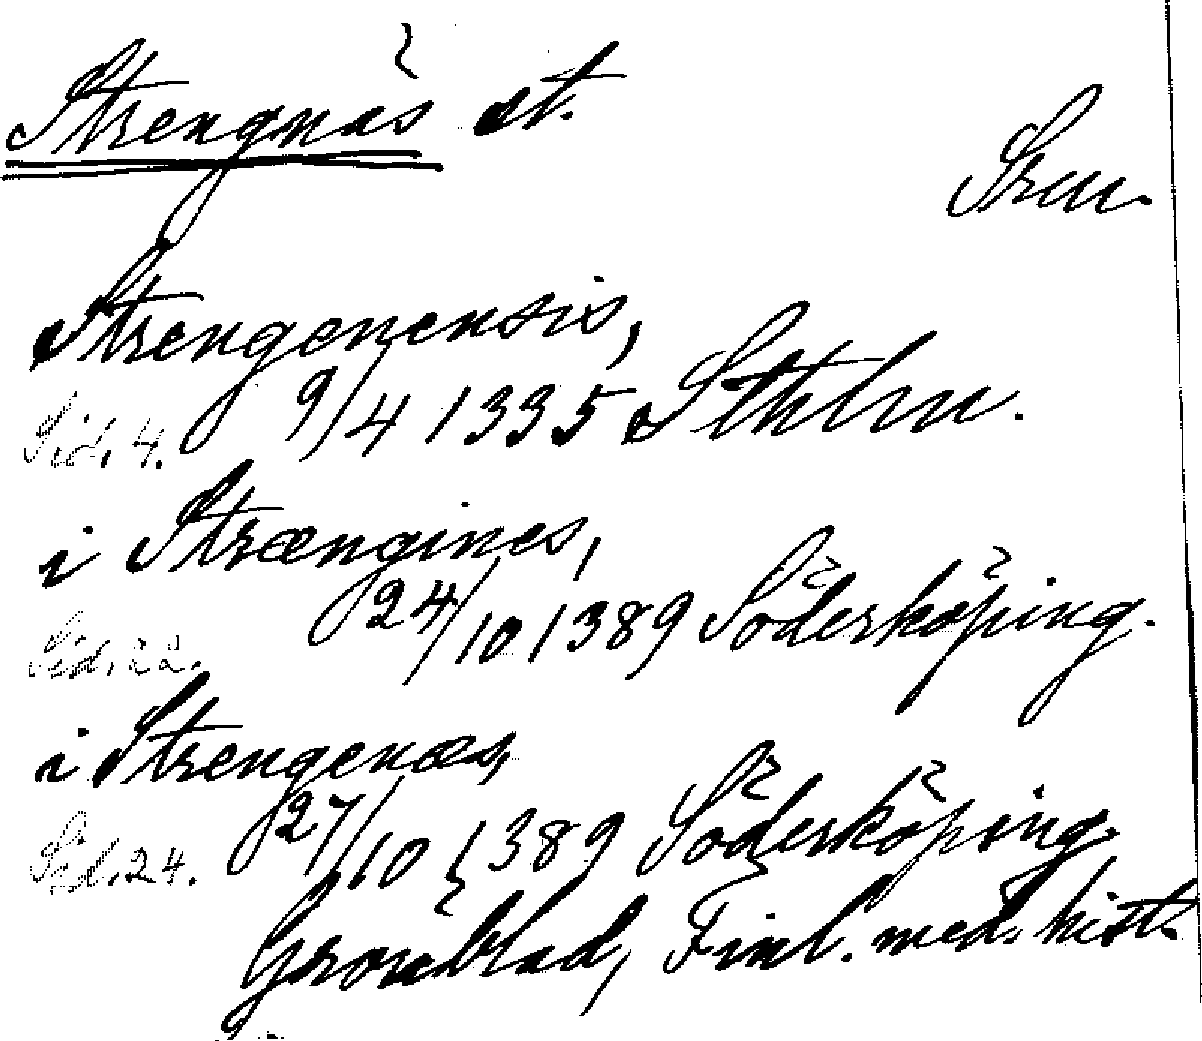 Strengnäs st.
Srm.
Strengenensis,
Sid. 4. 9/4 1335 Sthlm.
i Strængines,
Sid. 22. 24/10 1389 Söderköping.
i Strengenæs,
Sid. 24. 27/10 1389 Söderköping.
Grönblad, Finl. med. hist.